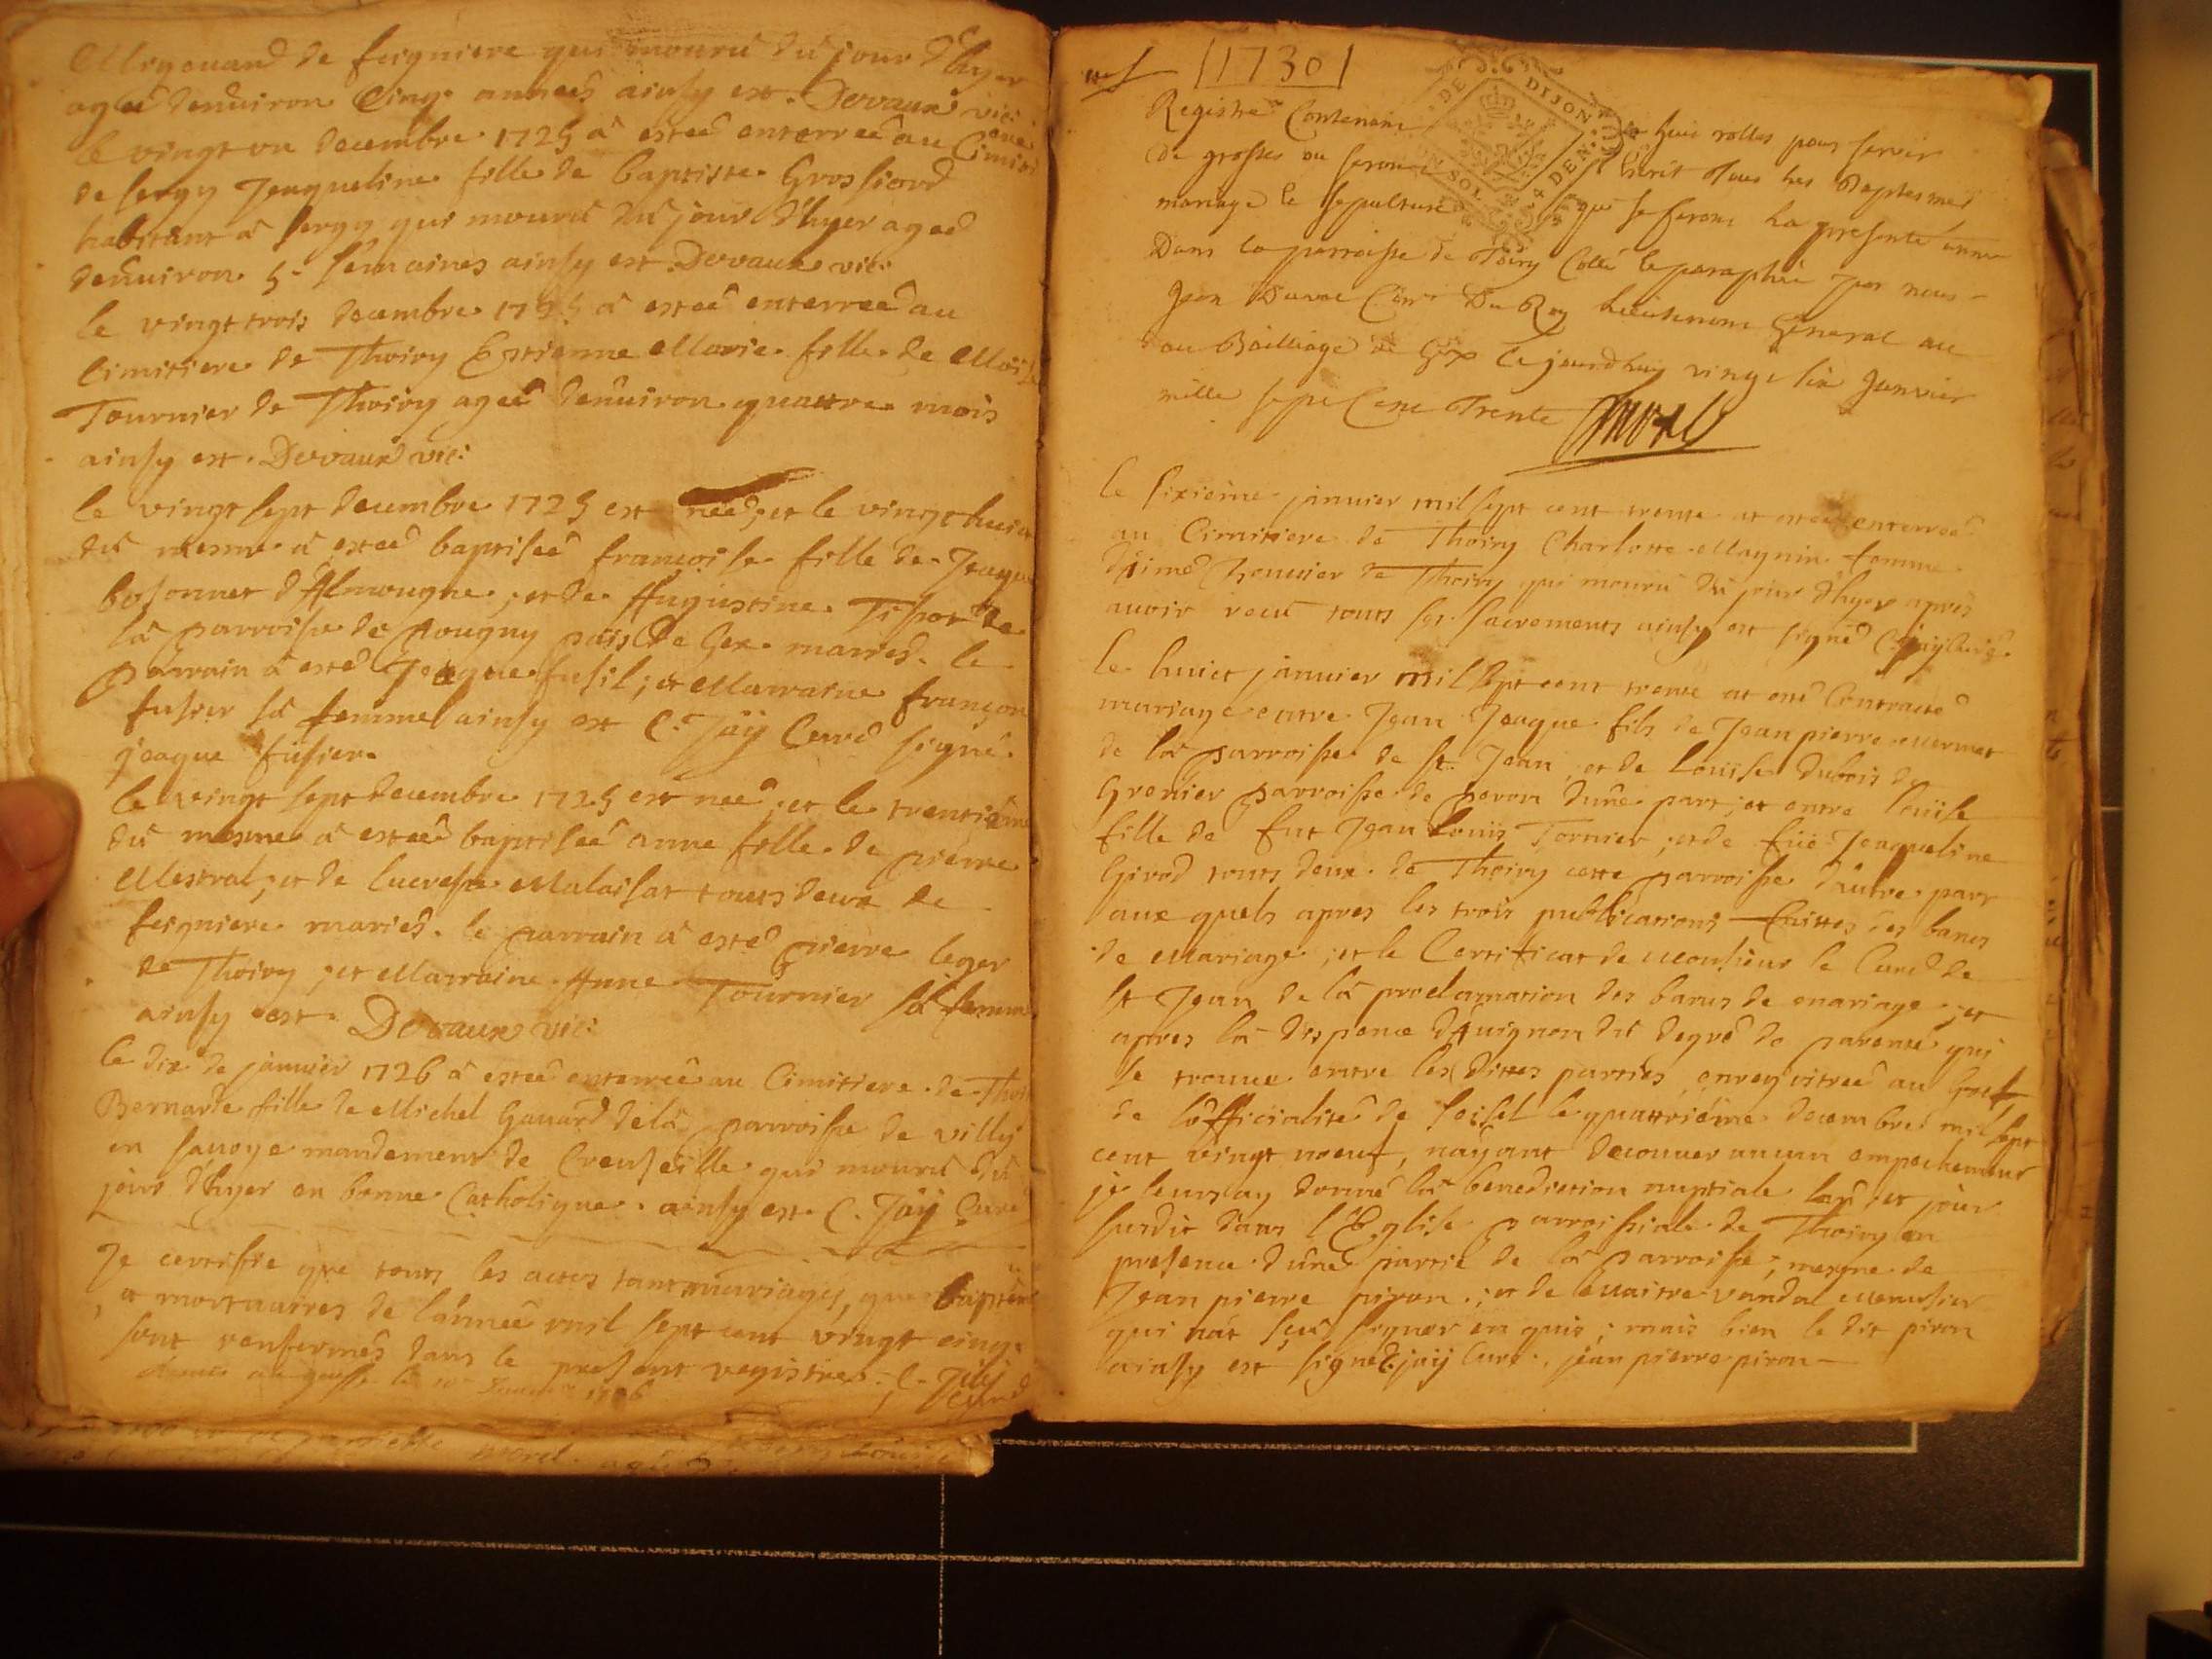 de feigniere qui mourut du jour d'hyer
agée denuiron Cinq années ainsy est. Devaux vic:
le vingt un decembre 1725 à estée enterrée au Cimitiere
de sergy Jeaqueline fille de baptiste Grosfiord
habitant à sergy qui mourut du jour d'hyer agée
denuiron 5 semaines ainsy est Devaux vic:
le vingt trois decembre 1725 à estée enterrée au
Cimitiere de Thoiry Estienne Marie fille de
Tournier de Thoiry agée denuiron quattre mois
ainsy est. Devaux vic:
le vingt sept decembre 1725 est née, et le vingt huit
du mesme à estée baptisée françoise fille de
bosonnet ; et de Augustine
là parroisse de pougny païs de Gex mariés. le
parrain à esté Jeaque fusil ; et Marraine françon
fusier sà femme ainsy est C. Jaÿ Curé signé
jeaque fusier.
le vingt sept decembre 1725 est née ; et le trentième
du mesme à estée baptisée anne fille de pierre
Mestral ; et de lucresse Malaisat touts deux de
feigniere mariés. le parrain à esté pierre leger
de Thoiry ; et Marraine Anne Tournier sà femme
ainsy est. Devaux vic:
le dix de janvier 1726 à estée enterrée au Cimitiere de
Bernarde fille de Michel Gavard de là parroisse de villy
en savoye mandement de Cruseille qui mourut du
jour d'hyer en bonne Catholique. ainsy est C. Jaÿ Curé
Je certifie que touts les actes tant mariages, que
et mortuaires de lànnée mil sept cent vingt cinq
sont renfermés dans le present registre. C. Jaÿ
Curé
1726
morel
1730
DE DIJON
SOL 4 DEN
Registre Contenant huit rolles pour servir
de grosses ou seront Escrit Tous les Baptesmes
mariage et sepulture qui se feront La presente année
Dans la parroisse de Toiry Cotté et paraphé par nous
Jean Duval Cons Du Roy Lieutenant General au
au Bailliage de Gex Cejourdhuy vingt six Janvier
mille sept Cent Trente
le sixième janvier mil sept cent trente at estée enterrée
au Cimitiere de Thoiry Charlotte Maynin femme
de Thoiry qui mourut du jour d'hyer après
avoir receu touts ses sacrements ainsy est signé
le huict janvier mil sept cent trente at esté Contracté
mariage entre Jean Jeaque fils de Jean pierre mermet
de là parroisse de st Jean, et de Louïse dubois de
Grenier parroisse de peron dùne part ; et entre Louïse
fille de fut Jean Louïs Tornier ; et de füe Jeaqueline
Girod touts deux de Thoiry cette parroisse d'autre part
aux quels apres les trois publications faittes des bancs
de Mariage ; et le Certificat de Monsieur le Curé de
st Jean de là proclamation des bancs de mariage ; et
apres là dispence d'Avignon du degré de parenté qui
se trouve entre les dittes parties enregistrée au Greffe
de lofficialité de seisel le quattriéme decembre mil sept
cent vingt noeuf, nàyant decouver aucun empechement
je leurs ay donné là benediction nuptiale lan et jour
susdit dans l'Eglise parroissiale de Thoiry en
presence dùne partie de là parroisse ; mesme de
Jean pierre piron ; et de Maitre vandal
qui nàt sçu signer en quis ; mais bien le dit piron
ainsy est signé C. jaÿ Curé. jean pierre piron